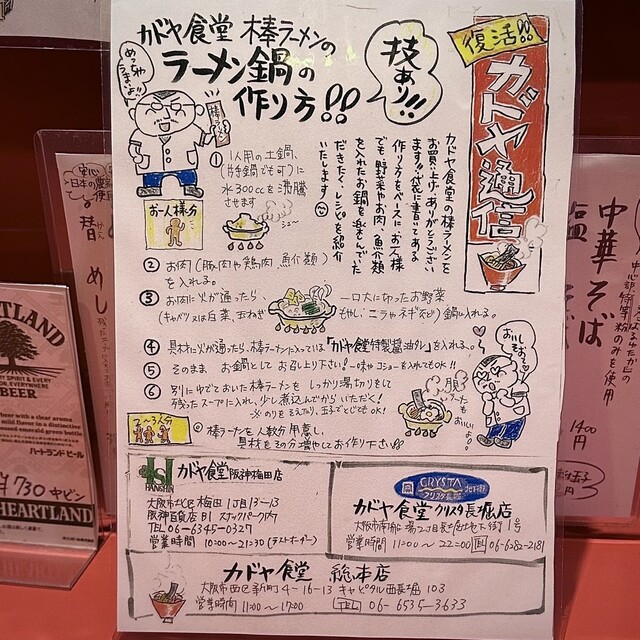 復活!!
カドヤ通信
カドヤ食堂 棒ラーメンの
ラーメン鍋の
作り方!!
技あり!!
めっちゃ
うまいよ!!
棒ラーメン
カドヤ食堂の棒ラーメンを
お買い上げありがとうござい
ます!!袋に書いてある
作り方をベースに、お1人様
でも野菜やお肉、魚介類
を入れたお鍋を楽しんでいた
だきたく、レシピを紹介
いたします
お一人様分
① 1人用の土鍋、
(片手鍋でも可)に
水300ccを沸騰
させます
② お肉(豚肉や鶏肉、魚介類)
を入れる。
③ お肉に火が通ったら、一口大に切ったお野菜
(キャベツ又は白菜、玉ねぎ もやし、ニラやネギなど)鍋に入れる。
④ 具材に火が通ったら、棒ラーメンに入っている「カドヤ特製醤油タレ」を入れる。
⑤ そのまま お鍋として お召し上り下さい!一味や コショーを入れてもOK!!
⑥ 別にゆでておいた棒ラーメンを しっかり湯切りをして
残ったスープに入れ、少し煮込んでからいただく!
※のりをそえたり、玉子でとじてもOK!
棒ラーメンを人数分用意し、
具材もその分増やしてお作り下さい!!
HANSHIN
カドヤ食堂 阪神梅田店
大阪市北区梅田1丁目13-13
阪神百貨店B1 スナックパーク内
TEL 06-6345-0329
営業時間 10:00〜21:30(ラストオーダー)
CRYSTA
クリスタ長堀
カドヤ食堂 クリスタ長堀店
大阪市南船場2丁目長堀地下街1号
営業時間 11:00〜22:00 TEL 06-6282-2181
カドヤ食堂 総本店
大阪市西区新町4-16-13 キャピタル西長堀103
営業時間 11:00〜17:00 TEL 06-6535-3633
安心
日本の農
替
めし
HEARTLAND
BEER
ハートランドビール
¥730 中ビン
HEARTLAND
中華そば
塩
粉のみを使用
1400
円